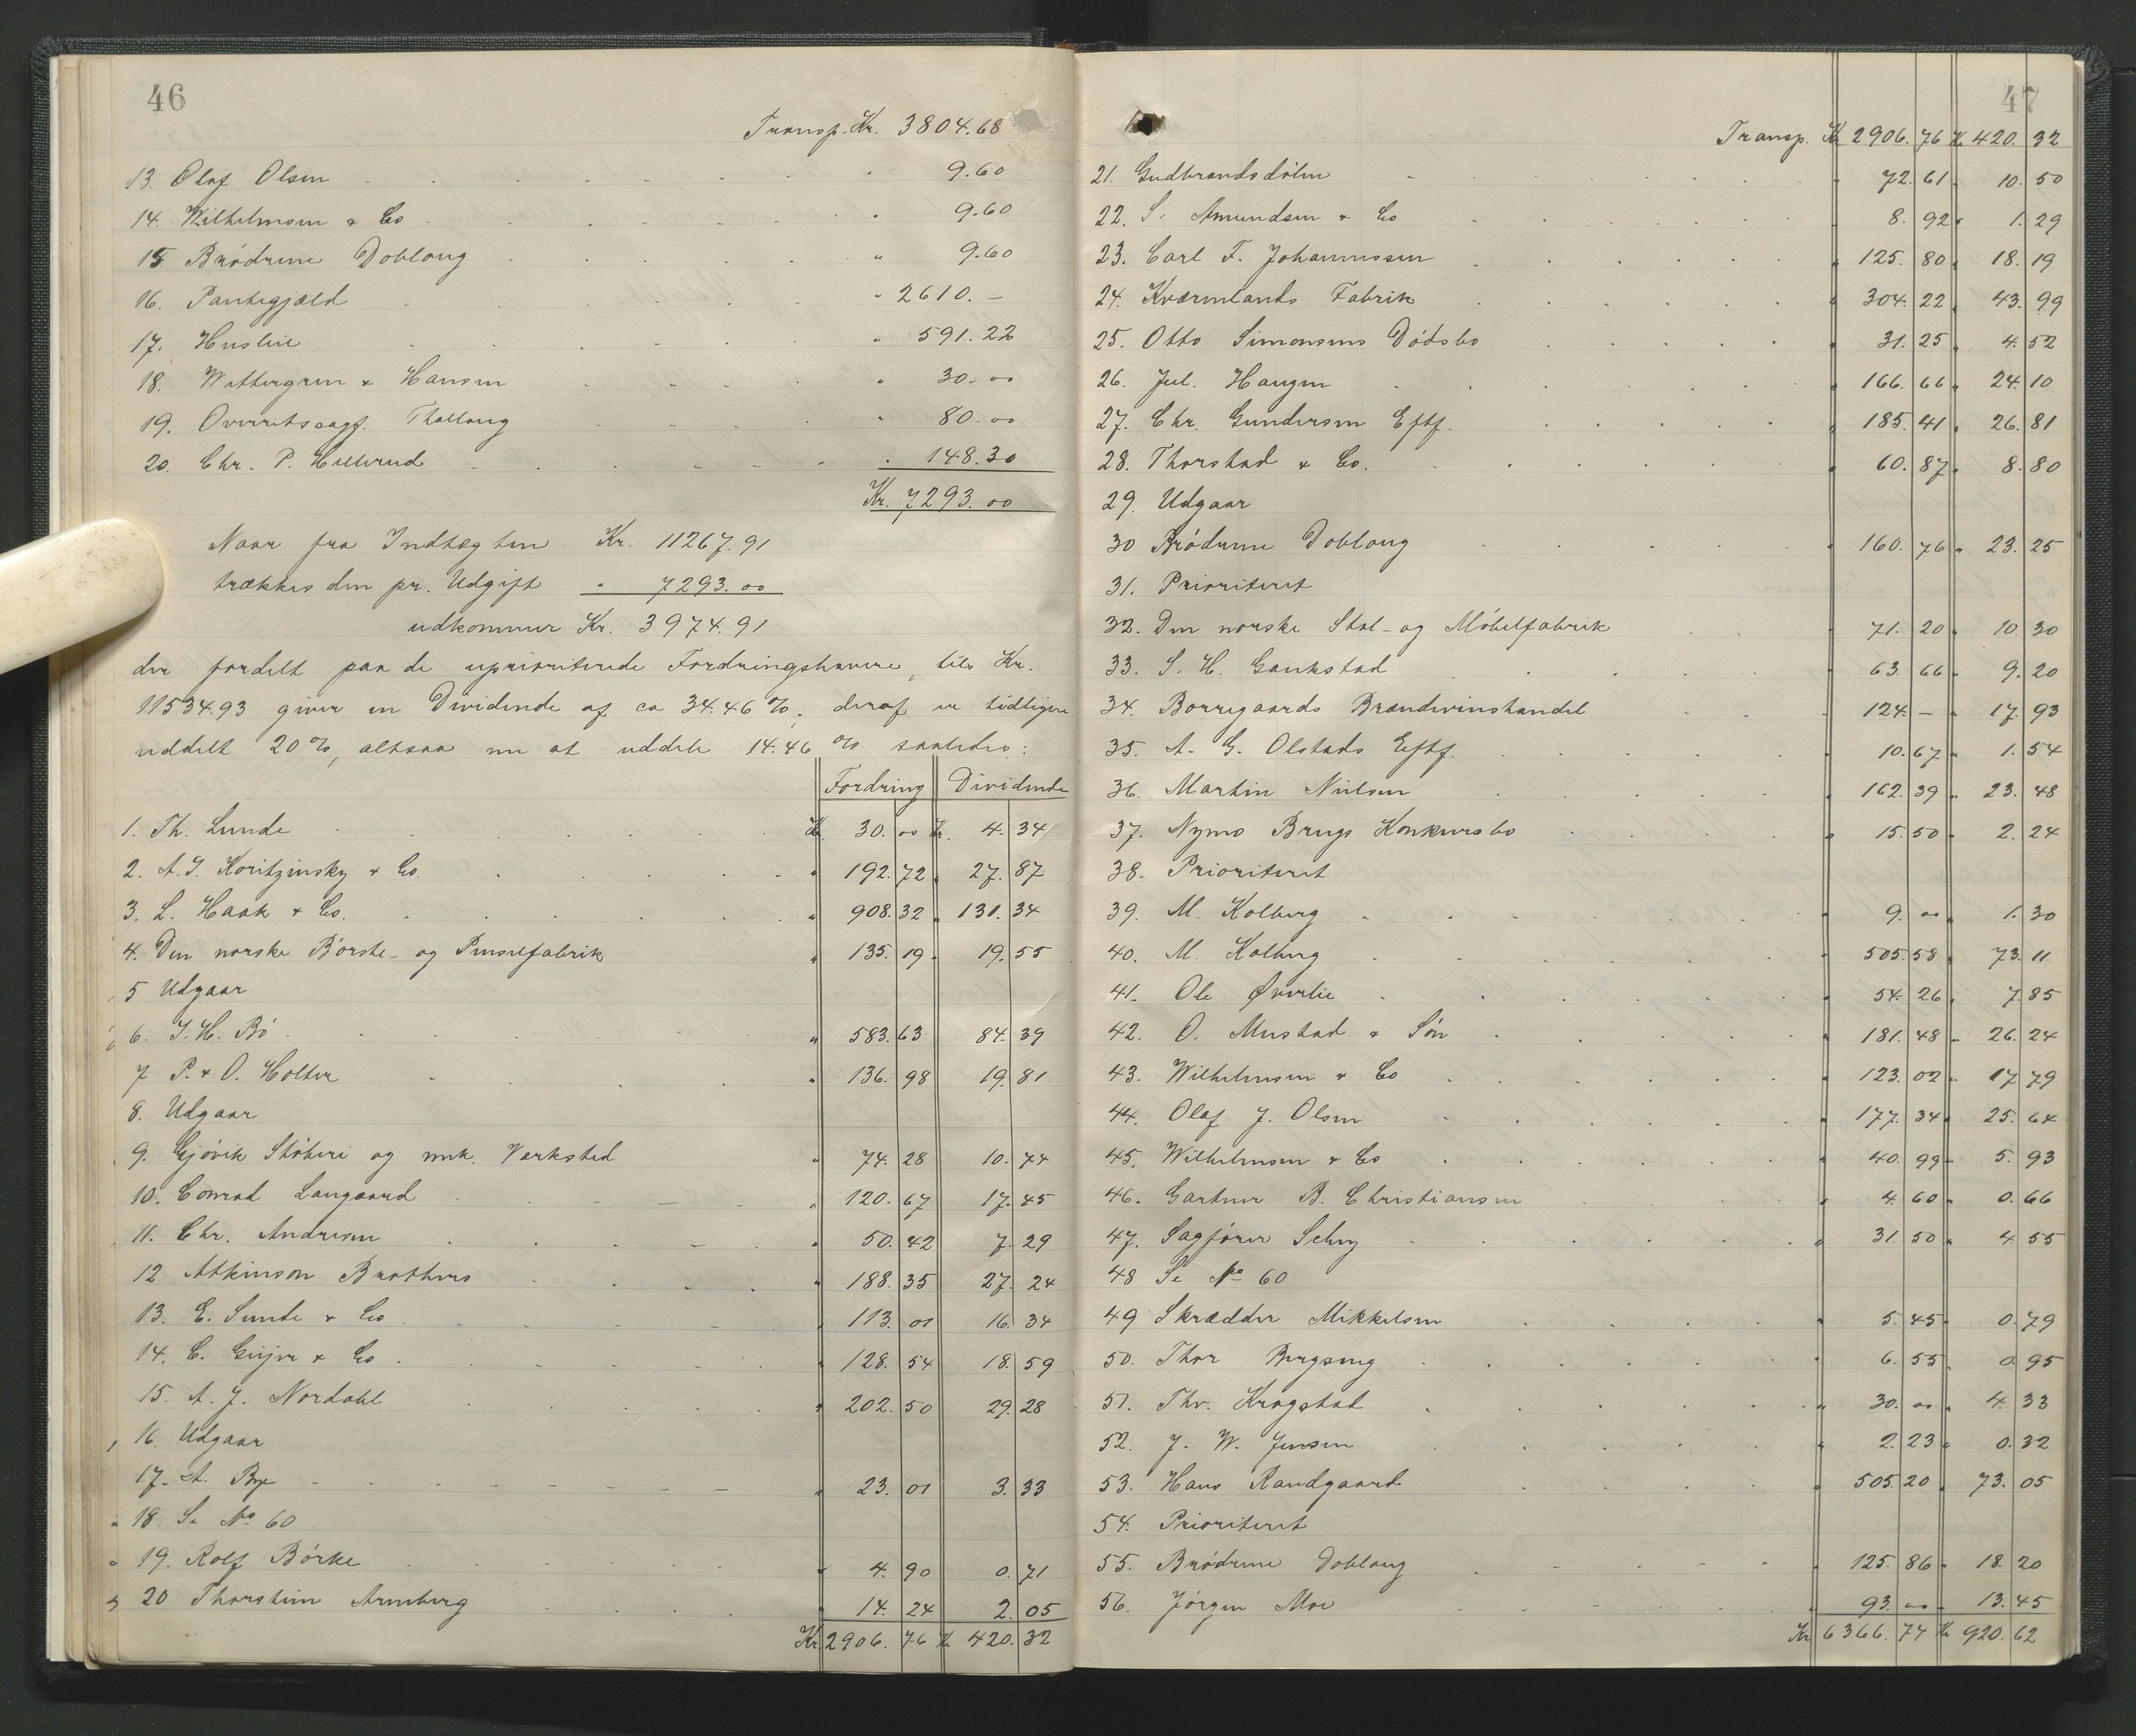 46
Transp. Kr. 3804.68
13. Olaf Olsen " 9.60
14. Wilhelmsen & Co " 9.60
15 Brødrene Doblong " 9.60
16. Pantegjæld " 2610. –
17. Husleie " 591.22
18. Wettergren & Hansen " 30.00
19. Overretssagf. Thallaug " 80.00
20. Chr. P. Hillerud " 148.30
Kr. 7293.00
Naar fra Indtægten Kr. 11267.91
trækkes den pr. Udgift " 7293.00
udkommer Kr. 3974.91
der fordelt paa de uprioriterede Fordringshavere, tils Kr.
11534.93 giver en Dividende af ca 34.46 %, deraf er tidligere
uddelt 20 %, altsaa nu at uddele 14.46 % saaledes:
Fordring Dividende
1. Th. Lunde Kr. 30.00 Kr. 4.34
2. A.I. Koritzinsky & Co. " 192.72 " 27.87
3. L. Haak & Co. " 908.32 " 131.34
4. Den norske Børste- og Penselfabrik " 135.19 " 19.55
5 Udgaar
6. I.H. Bø " 583.63 84.39
7 P. & O. Holter " 136.98 19.81
8. Udgaar
9. Gjøvik Støberi og mek. Verksted " 74.28 10.74
10. Conrad Langaard " 120.67 17.45
11. Chr. Andresen " 50.42 7.29
12 Atkinson Brothers " 188.35 27.24
13. E. Sunde & Co " 113.01 16.34
14. C. Geijer & Co " 128.54 18.59
15. A. J. Nordahl " 202.50 29.28
16. Udgaar
17. A. Bye " 23.01 3.33
18. Se No 60
19. Rolf Børke " 4.90 0.71
20 Thorstein Arneberg " 14.24 2.05
Kr 2906.76 Kr 420.32
47
Transp. Kr 2906.76 Kr 420.32
21. Gudbrandsdølen " 72.61 " 10.50
22. S. Amundsen & Co " 8.92 " 1.29
23. Carl F. Johannessen " 125.80 " 18.19
24. Kværnlands Fabrik " 304.22 " 43.99
25. Otto Simensens Dødsbo " 31.25 " 4.52
26. Jul. Haugen " 166.66 " 24.10
27. Chr. Gundersen Eftf. " 185.41 " 26.81
28. Thorstad & Co. " 60.87 " 8.80
29. Udgaar
30 Brødrene Doblong " 160.76 " 23.25
31. Prioriteret
32. Den norske Stol- og Møbelfabrik " 71.20 " 10.30
33. S. H. Gankstad " 63.66 " 9.20
34. Borregaards Brændevinshandel " 124. – " 17.93
35. A. G. Olstads Eftf. " 10.67 " 1.54
36. Martin Nielsen " 162.39 " 23.48
37. Nymo Brugs Konkursbo " 15.50 " 2.24
38. Prioriteret
39. M. Kolberg " 9.00 " 1.30
40. M. Kolberg " 505.58 " 73.11
41. Ole Øverlie " 54.26 " 7.85
42. O. Mustad & Søn " 181.48 " 26.24
43. Wilhelmsen & Co " 123.02 " 17.79
44. Olaf J. Olsen " 177.34 " 25.64
45. Wilhelmsen & Co " 40.99 " 5.93
46. Gartner B. Christiansen " 4.60 " 0.66
47. Sagfører " 31.50 " 4.55
48 Se No 60
49 Skrædder Mikkelsen " 5.45 " 0.79
50. Thor Bergseng " 6.55 " 0.95
51. Thv. Krogstad " 30.00 " 4.33
52. J. W. Jensen " 2.23 " 0.32
53. Hans Randgaard " 505.20 " 73.05
54. Prioriteret
55. Brødrene Doblong " 125.86 " 18.20
56. Jørgen Moe " 93.00 " 13.45
Kr 6366.74 Kr 920.62